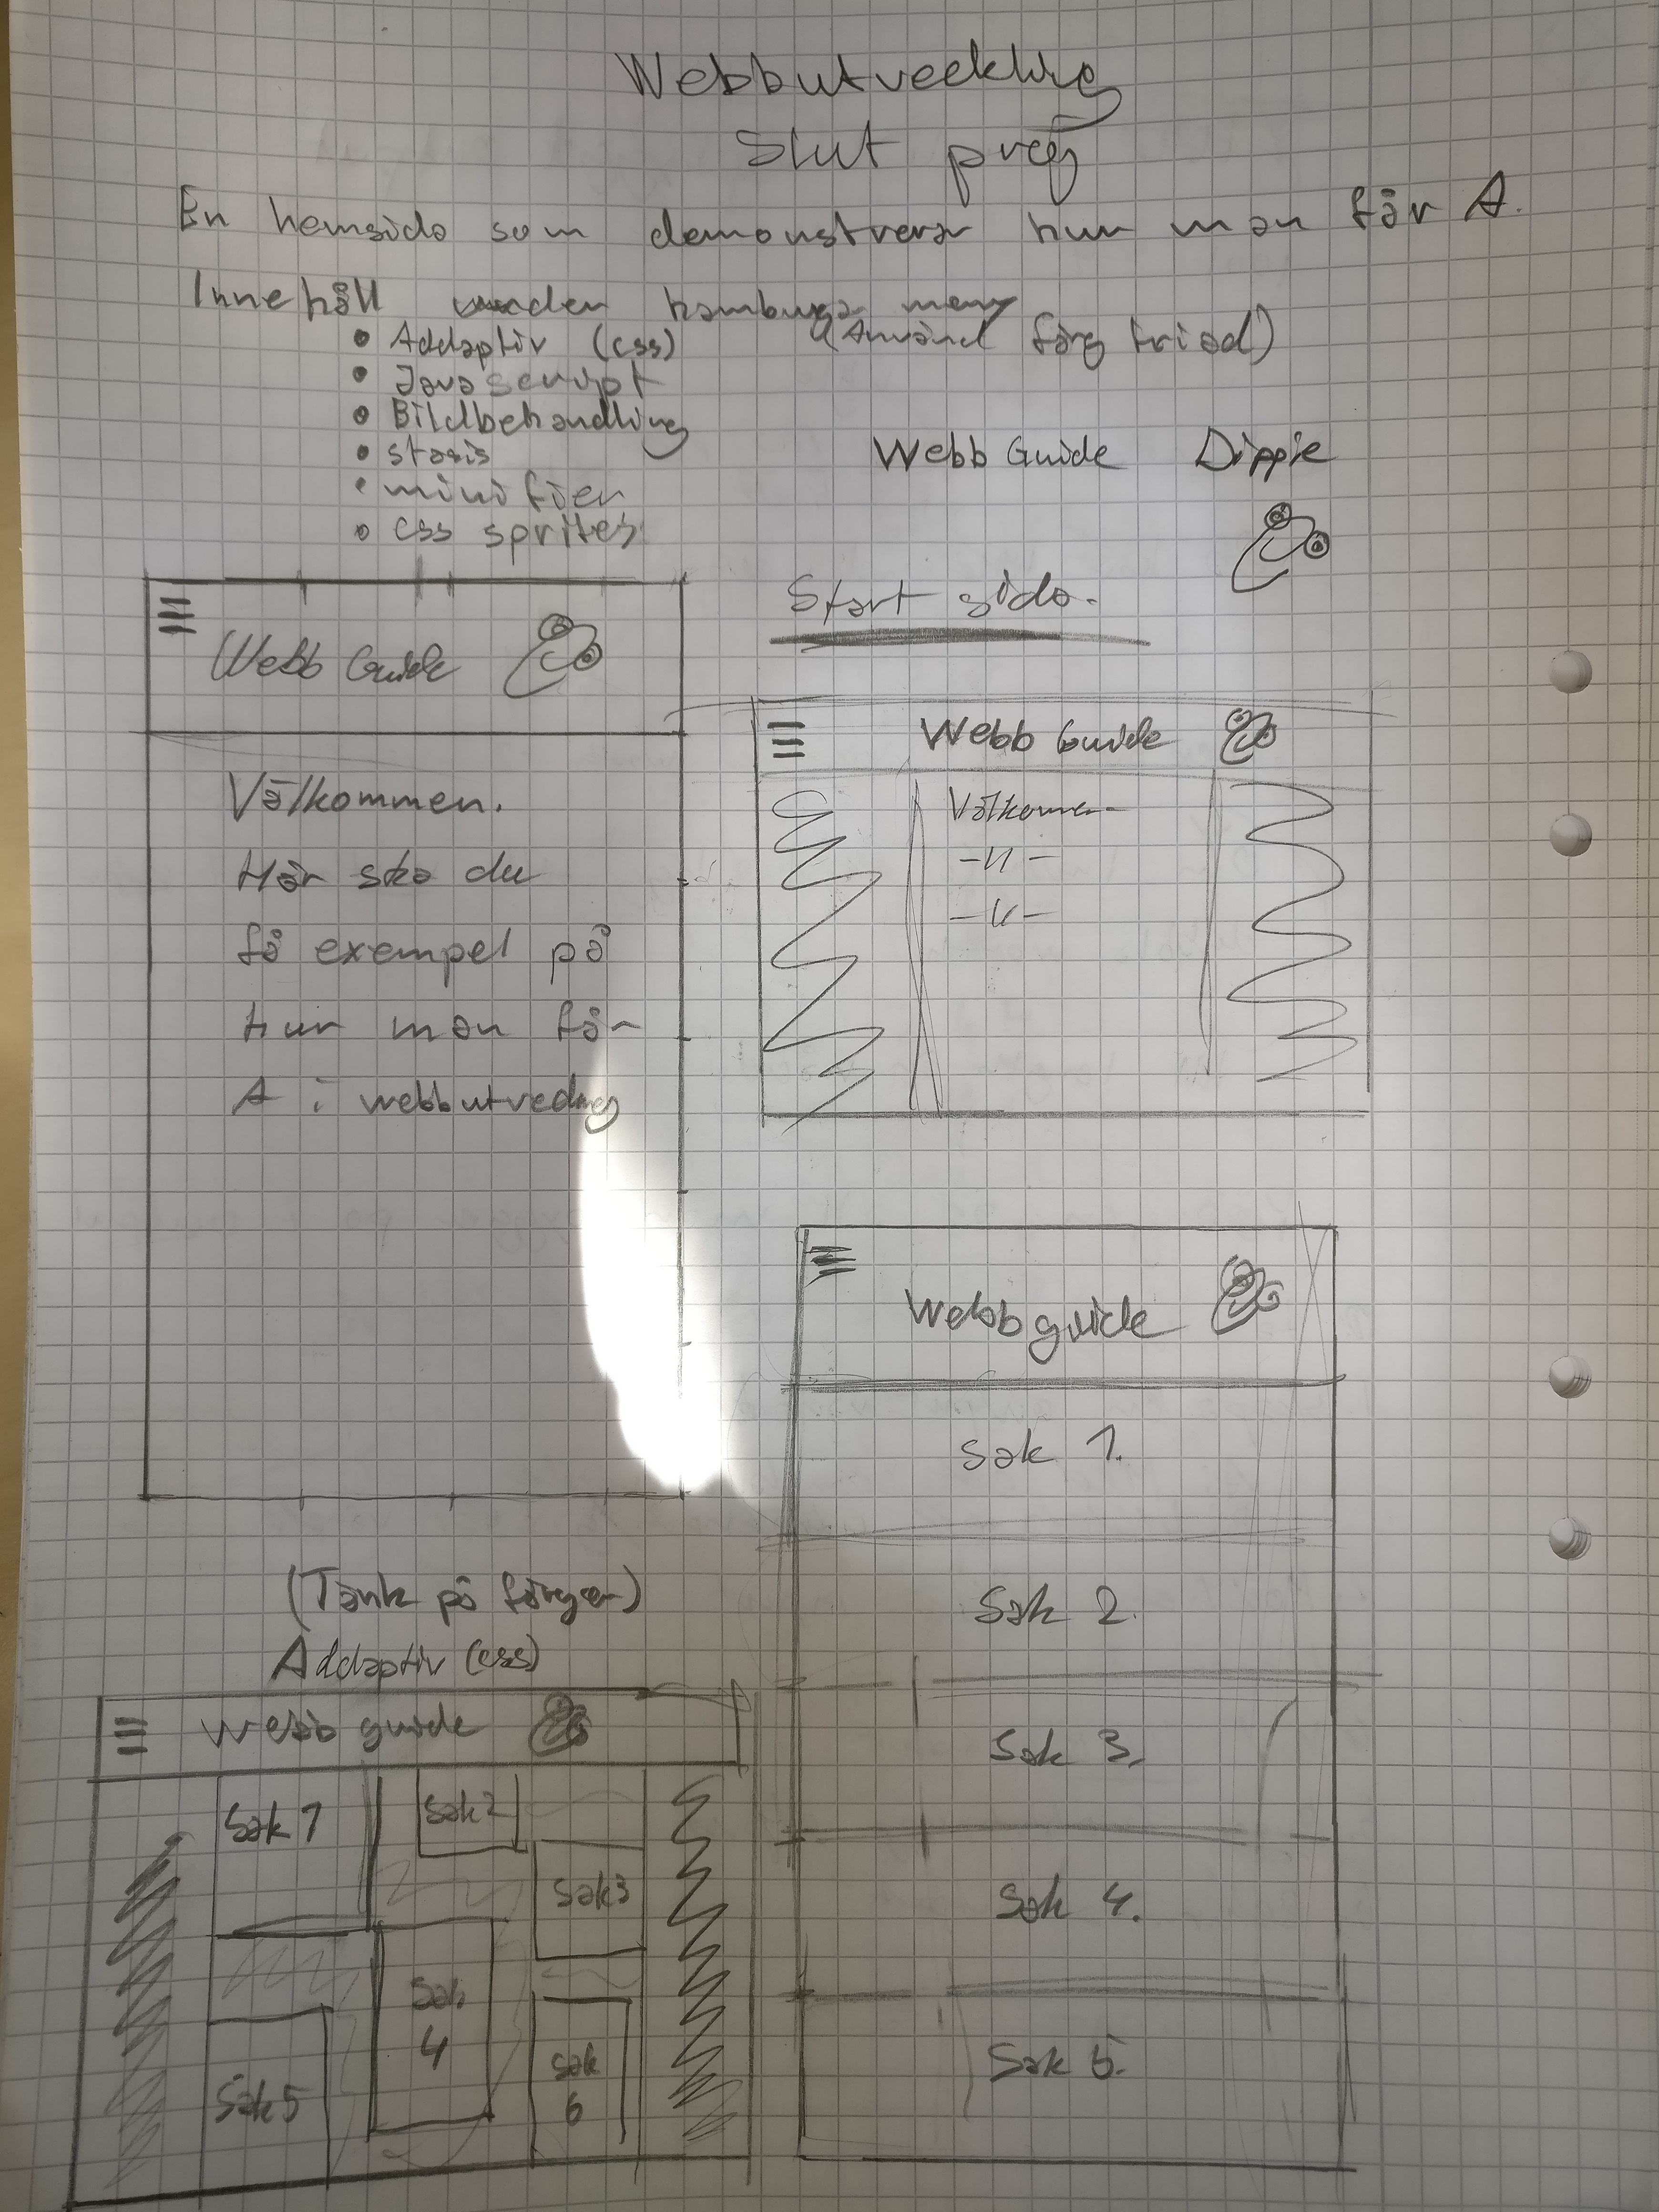 Webbutveckling
Slut proj
En hemsida som demonstrerar hur man får A.
Innehåll under hamburga meny
(Använd färg triad)
• Addaptiv (css)
• Javascript
• Bildbehandling
• stasis
• minifier
• css sprites
Webb Guide Dippie
Start sida.
Webb Guide
Välkommen.
Här ska du
få exempel på
hur man får
A i webbutveckling
Webb Guide
Välkommen
-11-
-11-
Webb guide
Sak 1.
Sak 2.
Sak 3.
Sak 4.
Sak 5.
(Tänk på färgen)
Addaptiv (css)
Webb guide
Sak 1
Sak 2
Sak 3
Sak
4
Sak 5
Sak
6